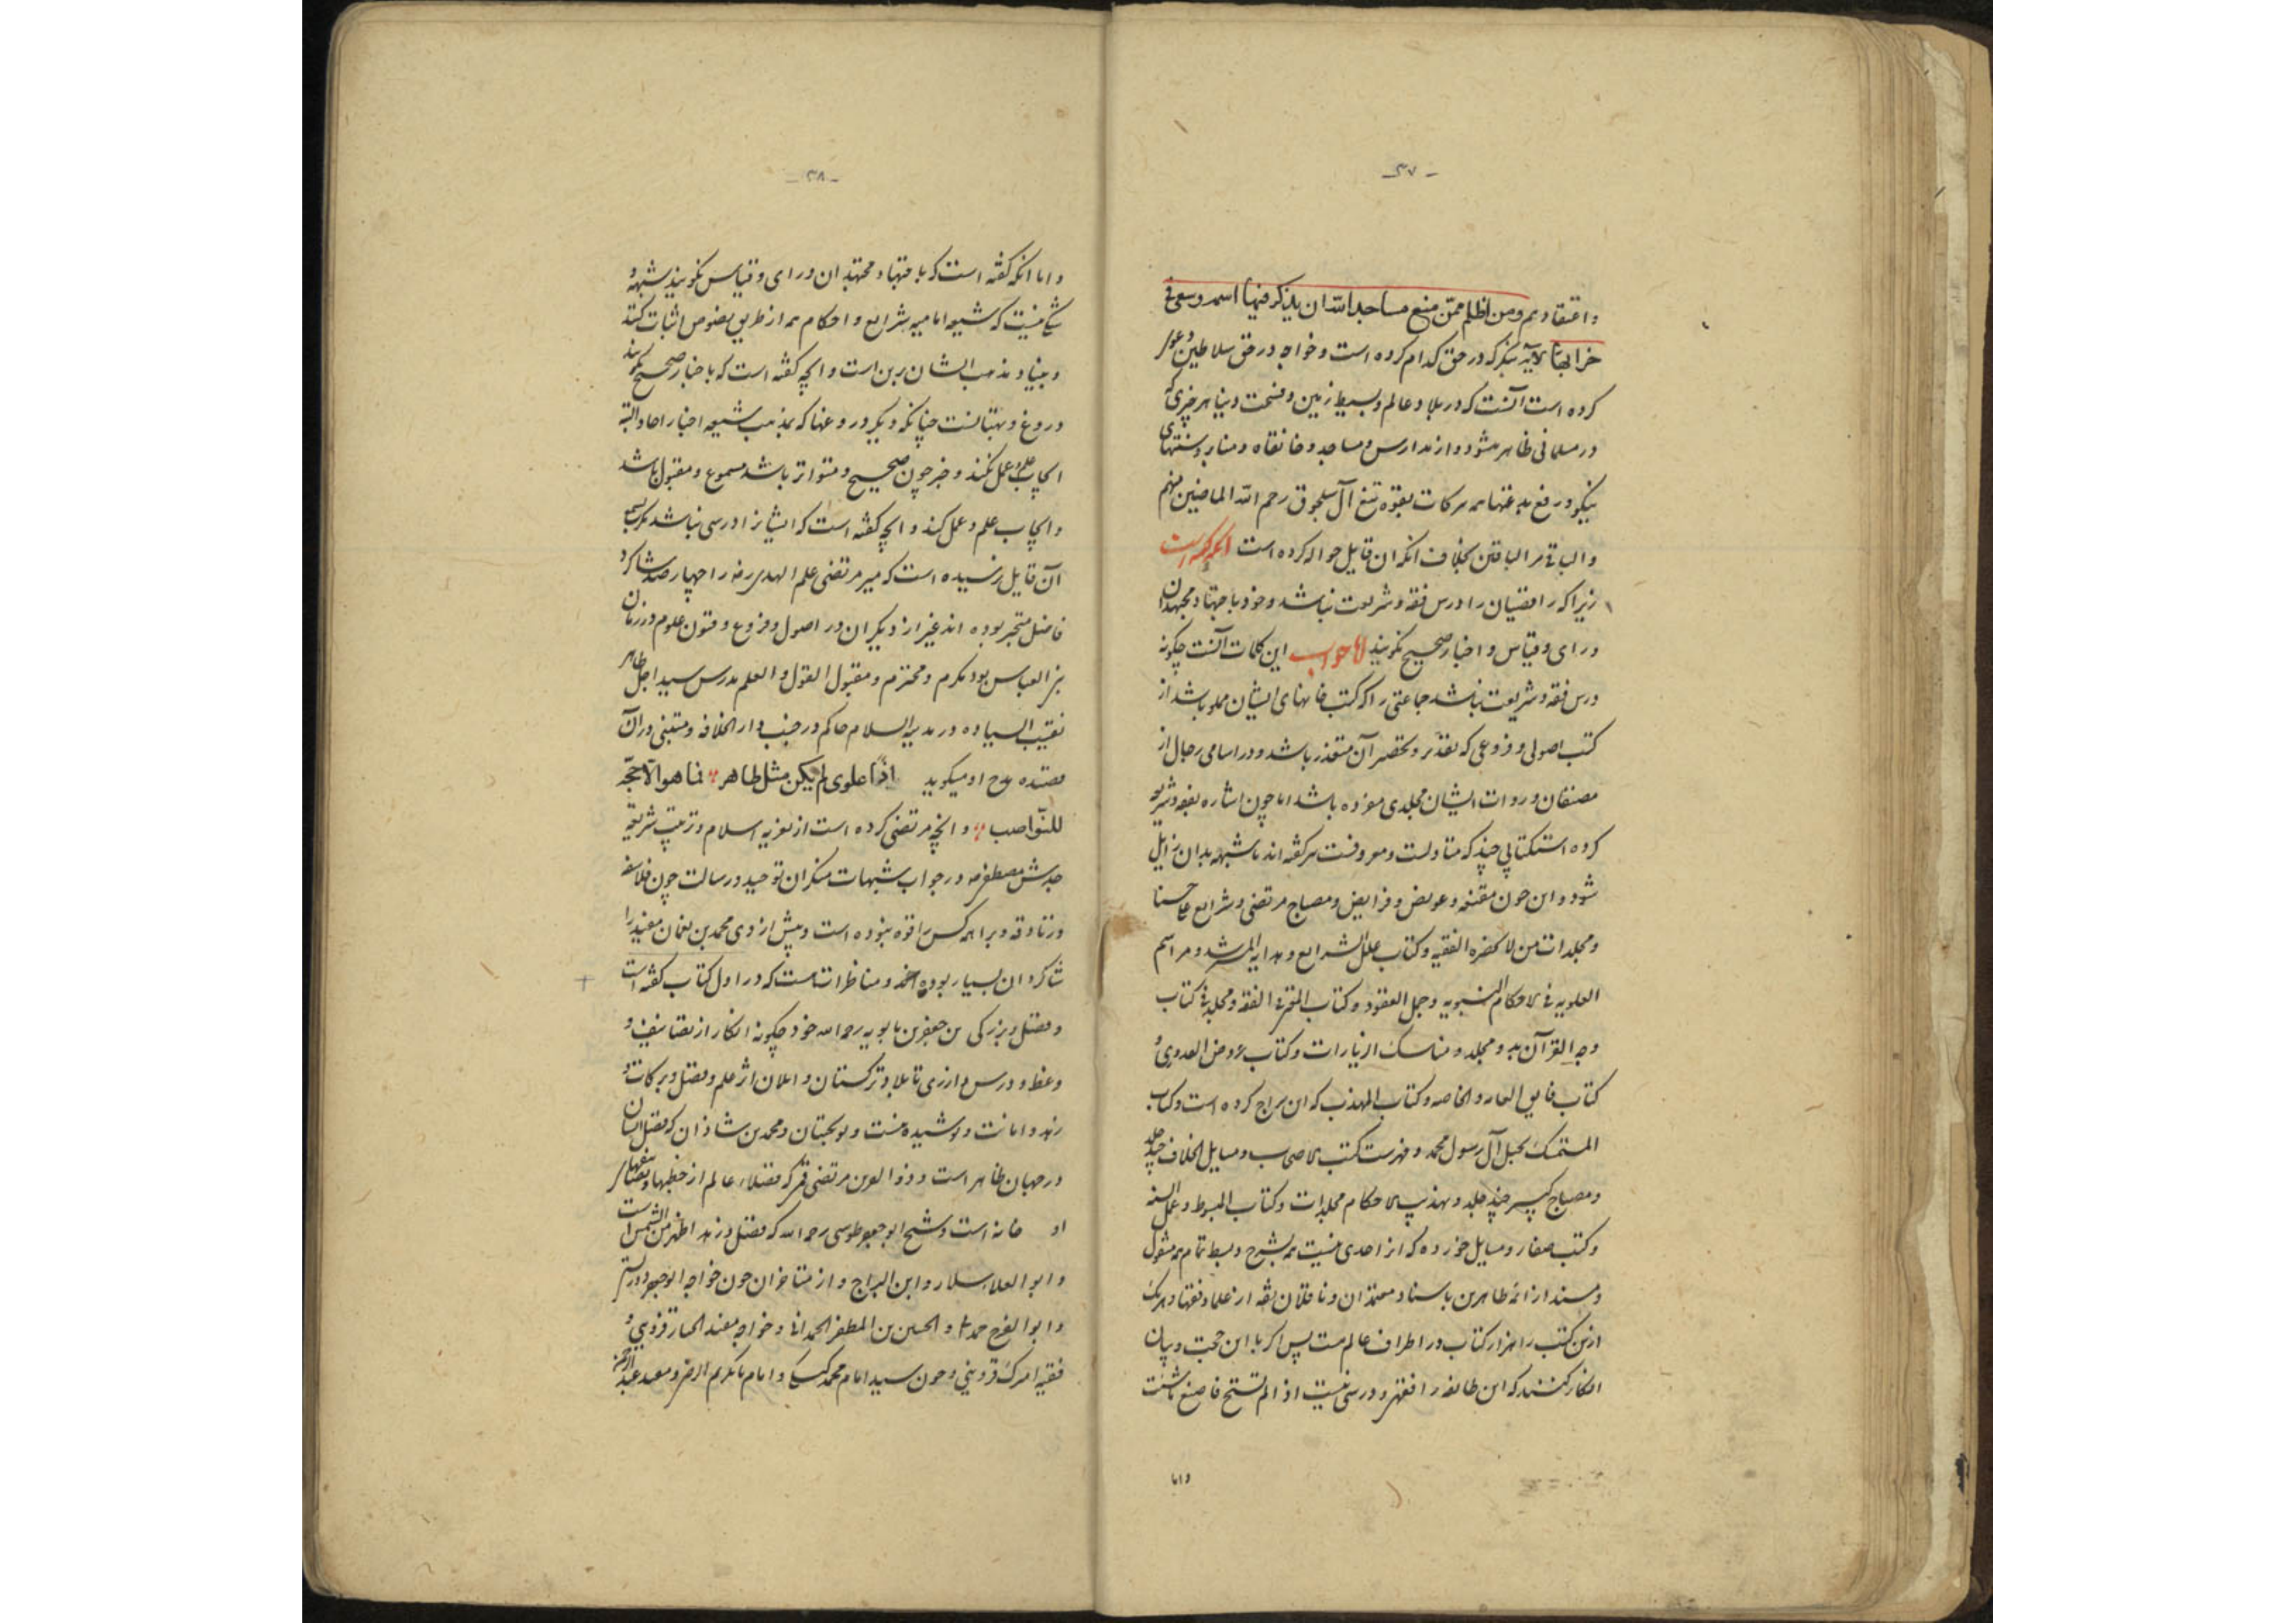 - ۳۷ -
واعتقادیم ومن اظلم ممّن منع مساجد الله ان یذکر فیها اسمه وسعی فی
خرابها الآیه بنگر که در حق کدام کرده است وخواجه در حق سلاطین
کرده است آنست که در بلاد عالم وبسیط زمین وفسحت دنیا هر چیزی که
در مسلمانی ظاهر میشود از مدارس ومساجد وخانقاه ومنابر وسنتهای
نیکو ودفع بدعتها همه برکات بقوه تیغ آل سلجوق رحم الله الماضین منهم
والباقی مر الباقین بخلاف آنکه ان قایل حواله کرده است آنکه گفته است
زیرا که رافضیان را درس فقه وشریعت نباشد وخود باجتهاد مجتهدان
در ای وقیاس واخبار صحیح نگویند اما جواب این کلمات آنست چگونه
درس فقه وشریعت نباشد جماعتی را که کتب خانهای ایشان مملو باشد از
کتب اصولی وفروعی که تعدّد وتحصر آن متعذر باشد ودر اسامی رجال از
مصنفان وروات ایشان مجلدی مفرده باشد اما چون اشاره بفقه وشریعه
کرده است کتابی چند که متداولست ومعروفست برگفته اند تا شبهه بدان زایل
شود وان چون مقنعه وعویض وفرایض ومصباح مرتضی وشرایع علی حسنا
ومجلدات من لا یحضره الفقیه وکتاب علل الشرایع وهدایه المرشد ومراسم
العلویه فی الاحکام النبویه وجمل العقود وکتاب المقرفی الفقه ومجلد فی کتاب
وجه القرآن به ومجلد ومناسک الزیارات وکتاب عروض العددی و
کتاب فایق العامه والخاصه وکتاب المهذب که ابن براج کرده است وکتاب
المتمسک بحبل آل رسول محمد وفهرست کتب الاصحاب ومسایل الخلاف چند جلد
ومصباح کبیر چند جلد وتهذیب الاحکام مجلدات وکتاب المبسوط وعمل السنه
وکتب صغار ومسایل خورده که از احدی نیست همه بشرح وبسط تمام همه منقول
ومسند از ائمه طاهرین باسناد معتمدان وناقلان ثقه از علما وفقها وهریک
ازین کتب را هزار کتاب در اطراف عالم هست پس اگر با این حجت وبیان
انکار کنند که این طایفه را فقهی ودرسی نیست اذا لم تستح فاصنع ما شئت
واما
- ۳۸ -
واما آنکه گفته است که باجتهاد مجتهدان ورای وقیاس نگویند شبهه و
شکی نیست که شیعه امامیه شرایع واحکام همه از طریق نصوص اثبات کنند
وبنیاد مذهب ایشان برین است وانچه گفته است که باخبار صحیح نگویند
دروغ وبهتانست چنانکه دیگر دروغها که بمذهب شیعه اخبار احاد البته
ایجاب علم وعمل نکند وخبر چون صحیح ومتواتر باشد مسموع ومقبول باشد
وایجاب علم وعمل کند وانچه گفته است که ایشانرا درسی نباشد مگر بسمع
آن قایل نرسیده است که میر مرتضی علم الهدی رضه را چهار صد شاگرد
فاضل متبحر بوده اند غیر از دیگران در اصول وفروع وفنون علوم ودر زمان
بنی العباس بود مکرم ومحترم ومقبول القول والعلم مدرس سید اجل طاهر
نقیب السیاده در مدینه السلام حاکم در جنب دار الخلافه ومتنبی در آن
قصیده مدح او میگوید اذا علوی لم یکن مثل طاهر فما هو الا حجّة
للنّواصب وانچه مرتضی کرده است از تقویه اسلام وتربیت شریعة
جدش مصطفی صه ودر جواب شبهات منکران توحید ورسالت چون فلاسفه
وزنادقه وبراهمه کس را قوه نبوده است وپیش از وی محمد بن نعمان مفید را
شاگردان بسیار بوده اند ومناظرات هست که در اول کتاب گفته است
وفضل وبزرگی بن جعفر بن بابویه رحمه الله خود چگونه انکار از تصانیف و
وعظ ودرس او از ری تا بلاد ترکستان وایلان اثر علم وفضل وبرکات و
زهد وامانت او پوشیده نیست ونوبختیان ومحمد بن شاذان که فضل ایشان
در جهان ظاهر است وذو العین مرتضی قمی که فضلاء عالم از خطبها وتصانیفهای
او خانه است وشیخ ابو جعفر طوسی رحمه الله که فضل وزهد او اظهر من الشمس است
وابو العلا سلار وابن البراج واز متاخران چون خواجه ابو جعفر دوریستی
وابو الفرج حمدانی والحسین بن المظفر الحمدانی وخواجه مفید الحبار قزوینی و
فقیه امیرک قزوینی وچون سید امام محمد کیسکی وامام بابکریم الرضی ومفید عبد الرحمن